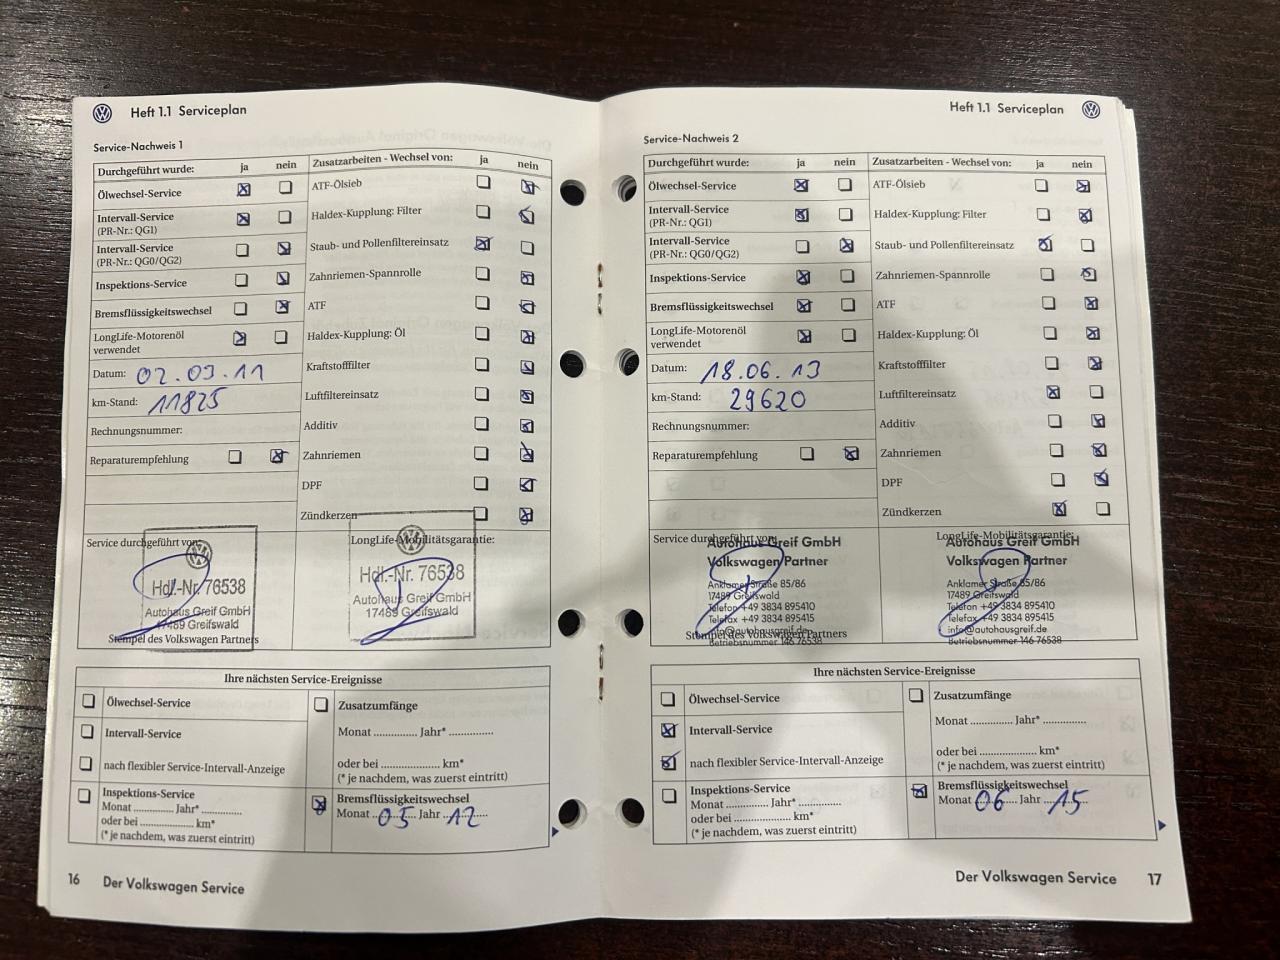 Heft 1.1 Serviceplan
Service-Nachweis 1
Durchgeführt wurde: ja nein
Ölwechsel-Service
Intervall-Service
(PR-Nr.: QG1)
Intervall-Service
(PR-Nr.: QG0/QG2)
Inspektions-Service
Bremsflüssigkeitswechsel
LongLife-Motorenöl
verwendet
Datum: 02.03.11
km-Stand: 11825
Rechnungsnummer:
Reparaturempfehlung
Zusatzarbeiten - Wechsel von: ja nein
ATF-Ölsieb
Haldex-Kupplung: Filter
Staub- und Pollenfiltereinsatz
Zahnriemen-Spannrolle
ATF
Haldex-Kupplung: Öl
Kraftstofffilter
Luftfiltereinsatz
Additiv
Zahnriemen
DPF
Zündkerzen
Service durchgeführt von:
Hdl.-Nr. 76538
Autohaus Greif GmbH
17489 Greifswald
Stempel des Volkswagen Partners
LongLife-Mobilitätsgarantie:
Hdl.-Nr. 76538
Autohaus Greif GmbH
17489 Greifswald
Ihre nächsten Service-Ereignisse
Ölwechsel-Service
Intervall-Service
nach flexibler Service-Intervall-Anzeige
Inspektions-Service
Monat .............. Jahr* ..............
oder bei .................... km*
(* je nachdem, was zuerst eintritt)
Zusatzumfänge
Monat .............. Jahr* ..............
oder bei .................... km*
(* je nachdem, was zuerst eintritt)
Bremsflüssigkeitswechsel
Monat 03 Jahr 12
16 Der Volkswagen Service
Heft 1.1 Serviceplan
Service-Nachweis 2
Durchgeführt wurde: ja nein
Ölwechsel-Service
Intervall-Service
(PR-Nr.: QG1)
Intervall-Service
(PR-Nr.: QG0/QG2)
Inspektions-Service
Bremsflüssigkeitswechsel
LongLife-Motorenöl
verwendet
Datum: 18.06.13
km-Stand: 29620
Rechnungsnummer:
Reparaturempfehlung
Zusatzarbeiten - Wechsel von: ja nein
ATF-Ölsieb
Haldex-Kupplung: Filter
Staub- und Pollenfiltereinsatz
Zahnriemen-Spannrolle
ATF
Haldex-Kupplung: Öl
Kraftstofffilter
Luftfiltereinsatz
Additiv
Zahnriemen
DPF
Zündkerzen
Service durchgeführt von:
Autohaus Greif GmbH
Volkswagen Partner
Anklamer Straße 85/86
17489 Greifswald
Telefon +49 3834 895410
Telefax +49 3834 895415
info@autohausgreif.de
Betriebsnummer 146 76538
Stempel des Volkswagen Partners
LongLife-Mobilitätsgarantie:
Autohaus Greif GmbH
Volkswagen Partner
Anklamer Straße 85/86
17489 Greifswald
Telefon +49 3834 895410
Telefax +49 3834 895415
info@autohausgreif.de
Betriebsnummer 146 76538
Ihre nächsten Service-Ereignisse
Ölwechsel-Service
Intervall-Service
nach flexibler Service-Intervall-Anzeige
Inspektions-Service
Monat .............. Jahr* ..............
oder bei .................... km*
(* je nachdem, was zuerst eintritt)
Zusatzumfänge
Monat .............. Jahr* ..............
oder bei .................... km*
(* je nachdem, was zuerst eintritt)
Bremsflüssigkeitswechsel
Monat 06 Jahr 15
Der Volkswagen Service 17